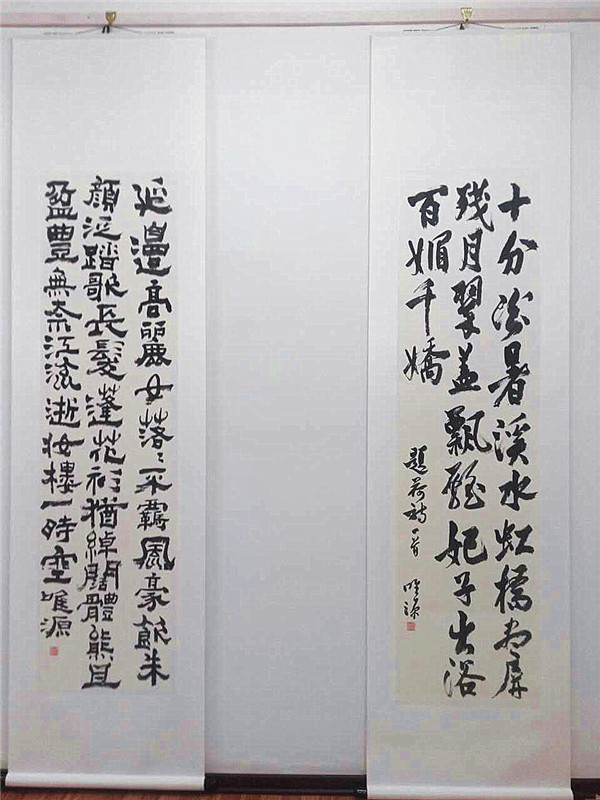 十分消暑溪水虹橋为屏
殘月翠盖飄妃子出浴
百媚千嬌
題荷詩一首 唯源
延邊高麗女落落羈風豪飲朱
顏泛踏歌長髮蓬花衫猶綽闊體態且
盈豐無奈江流逝妝樓一時空 唯源